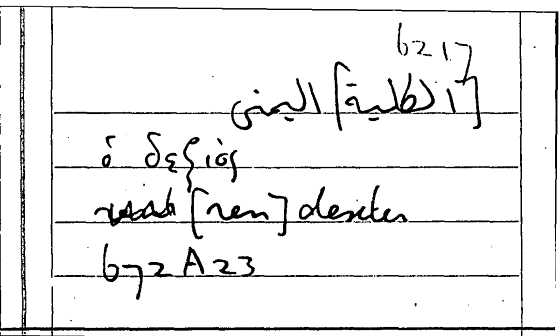 6217
[الكلية] اليمنى
ὁ δεξιός
[ren] dexter
672 A23